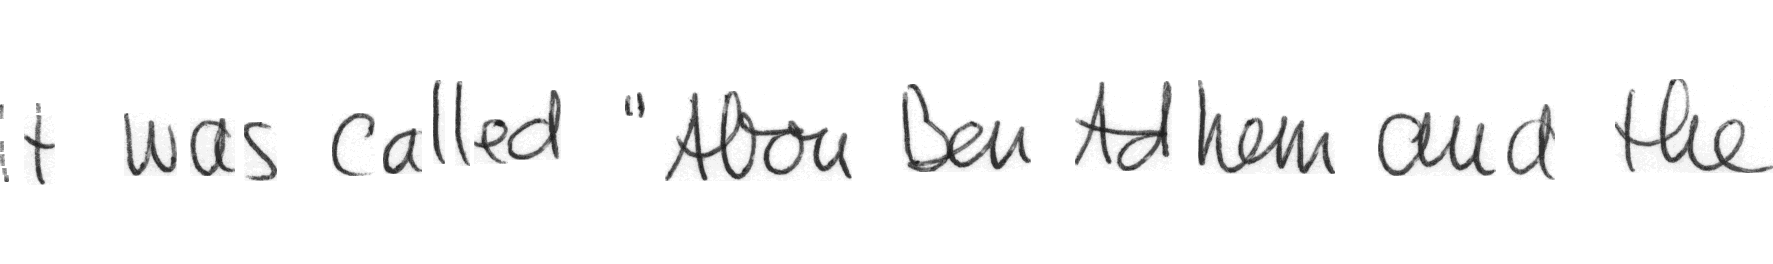 It was called "Abou Ben Adhem and the